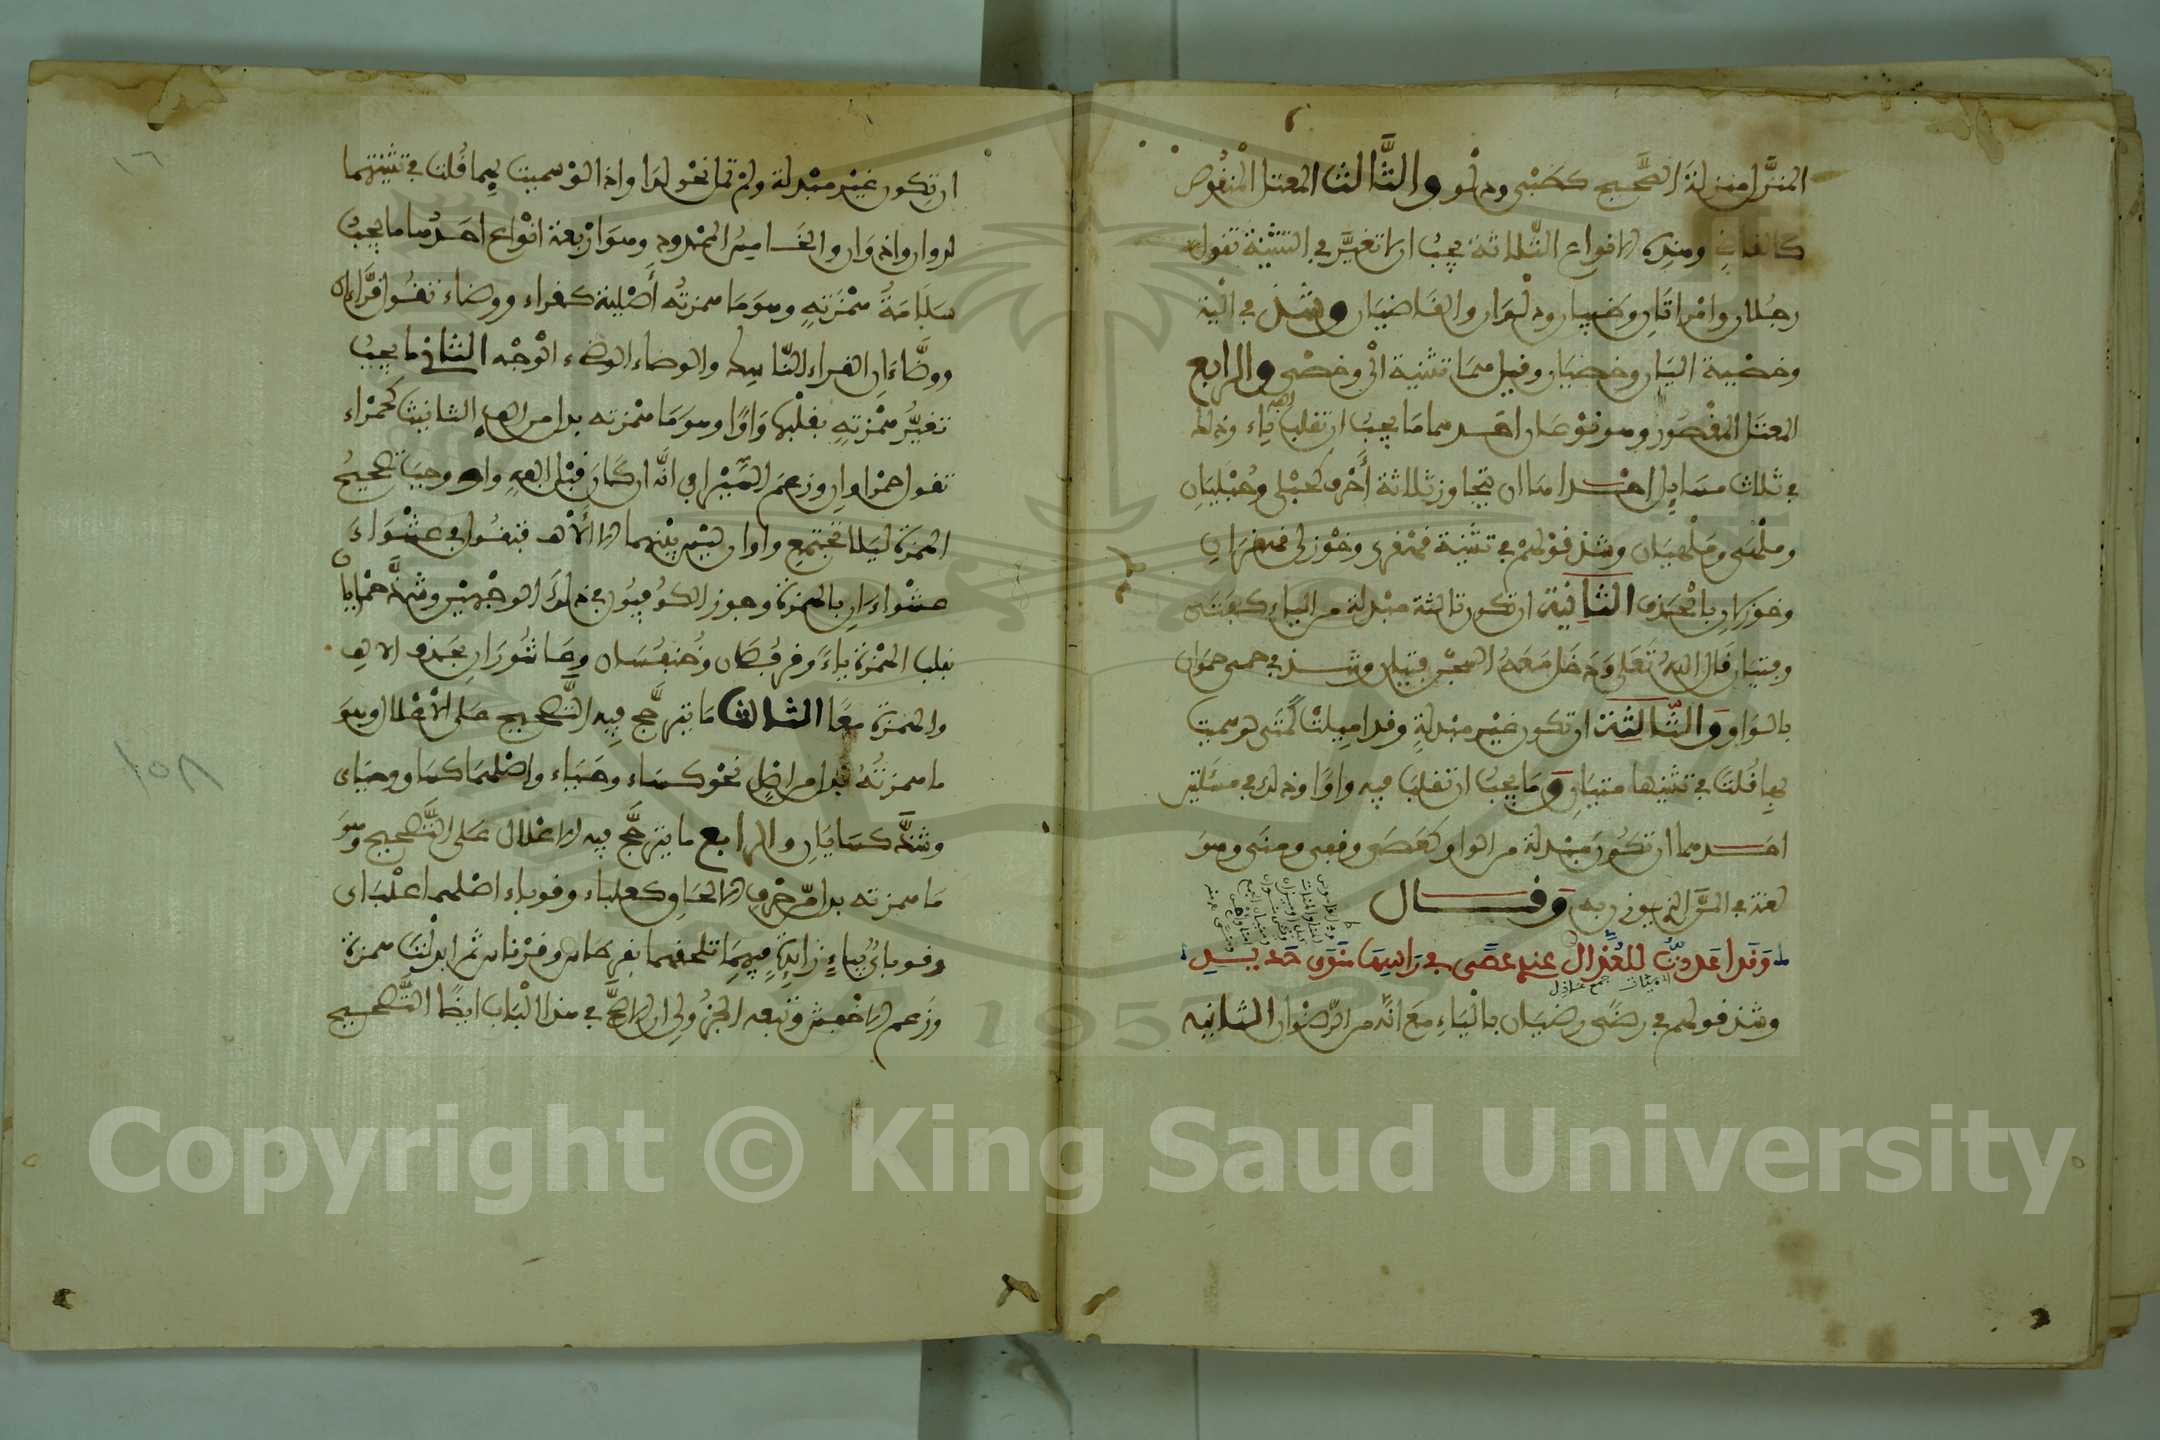 المنزل منزلة الصحيح كظبي ودلو والثَّالث المعتل المنْقُوص
كالقاضي وهذه الانواع الثلاثة يجبُ ان لا تغيَّر في التثنية تقول
رجُلان وامْراتَانِ وظبيان ودلْوان والقَاضيَان وشذ في الْية
وخصْية اليَان وخصيَان وقيل هما تثنية الْي وخصْي والرابع
المعتل المقْصُور وهو نوْعان احدهما مَا يجبُ ان تقلب الفه ياء وذلك
في ثلاث مسَايل احْداها ان يتجاوز ثلاثة أحْرف كحُبْلى وحُبْليَانِ
وملْهَى ومَلْهيَان وشذ قوْلهمْ في تثنية قهْقرى وخوْزلى قهقرَانِ
وخوْزلَانِ بالْحذف الثانِيَة ان تكون ثالثة مبْدلة من الياء كفَتَى
وفتيَان قَال اللهُ تعَلى وَدخَل مَعَهُ السجْن فتيان وشذ في حمى حموَان
بالوَاو وَالثَّالثَة ان تكون غيْر مبْدلةٍ وقد اميلتْ كمَتَى لو سميت
بها قُلتَ في تثنيتها متيَانِ وَمَا يجبُ ان تقلبَ فيه واوًا وذلك في مسْئلتين
احدهما ان تكُون مَبْدلَة من الواو كعَصَى وقفى ومنَى وهو
لغة في المنّ الذي يوزن به وَقَال
وَقَد اعدَدتُّ للعُذَّال عندي عصًى في رَاسِهَا منَوَى حَديدِ
جمع عاذل
وشذ قولهم في رضًى رضيَان بالْيَاءِ مَعَ انَّه من الرّضْوان الثانيه
ان تكون غيْر مبْدلة ولمْ تمل نحْو لدَا واذا لوْ سميت بهما قُلت في تثنيتهما
لدوان واذوَان والخَامسُ الممْدود وهوَ ارْبعة انْواع احدُها ما يجبُ
سَلَامَةُ همْزتهِ وهوَ مَا همزتُه أَصْلية كقراء ووضاء تقُول قرَّاءانِ
ووضَّاءَانِ والقراء النَّاسِك والوضاء الوضيء الوْجْه الثاني ما يجبُ
تغييرُ همْزتهِ بقلْبها وَاوًا وهوَ مَا همْزته بدل من الف التانيث كحمْراء
تقول حمْراوانِ وزعمَ السِّيْرافي انَّه ان كَانَ قبْل الفهِ واو وجبَ تصحيحُ
الهمزة ليَلا تجتمع واوان ليْس بيْنهما الا الْألف فتقُول في عشْوَاءَ
عشْواءَانِ بالهمزة وجوز الكُوفيُون في ذلك الوجْهيْن وشذَّ حمْرايان
بقلب الهمْزة ياءً وقرفُصَان وخُنفسَان وعَاشُورَانِ بحذف الالف
والهمزة معًا الثالث مَا يترجَّح فيه التَّصْحيح على الاعْلال وهو
ما همزتُهُ بدل من اصْل نحْو كسَاء وحَيَاء واصْلهمَا كسَاو وحيَاى
وشذَّ كسَايَانِ والرابع ما يترجَّح فيه الاعْلال عَلى التَّصْحيح وهوَ
مَا همزته بدل منْ حَرْفِ الالحَاق كعلباء وقوباء اصْلهما علْبَاى
وقوبائٌ بياءٍ زايدةٍ فيهمَا تلحقهما بقرطاس وقرْناس ثم ابدلَت همزة
وزَعم الاخْفش وتبعه الجزُولي ان الارْجَح في هذا الْبَاب ايضًا التَّصْحيح
١٥٨
Copyright © King Saud University
1957